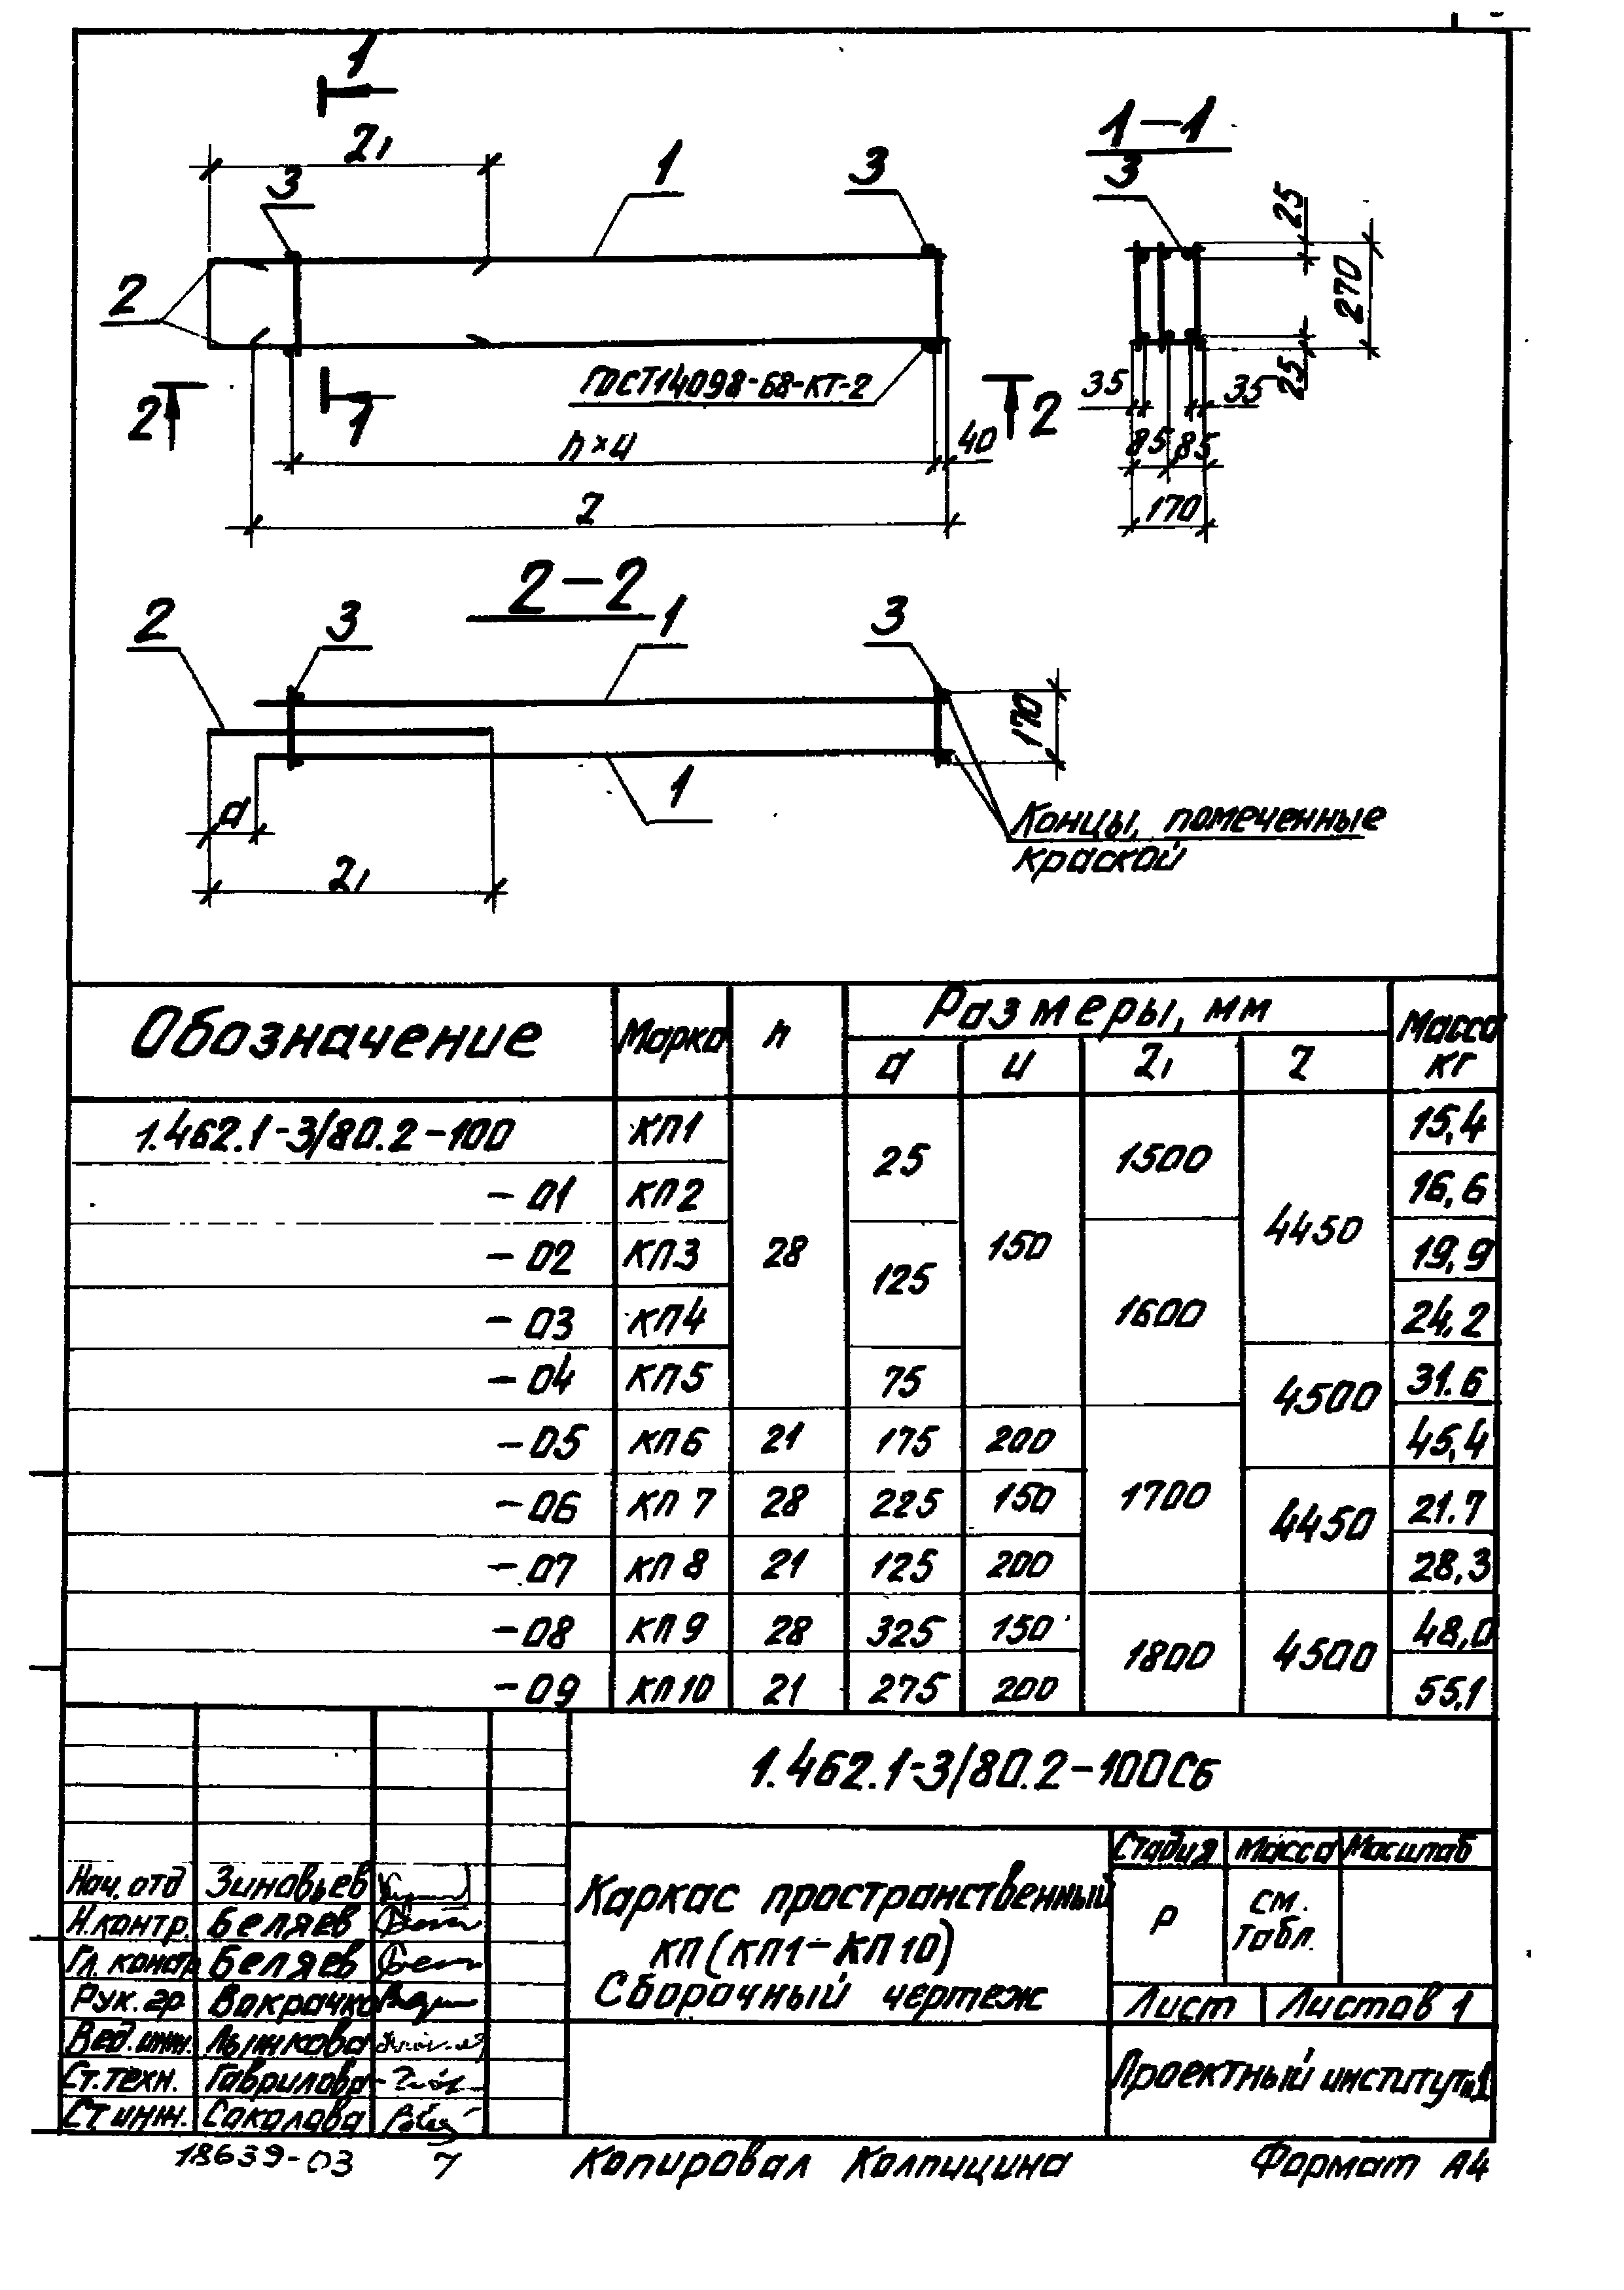 1
2₁
3
1
3
2
ГОСТ14098-68-КТ-2
2
1
2
n×u
40
2
1-1
3
25
270
25
35
35
85
85
170
2-2
2
3
1
3
170
1
a
2₁
Концы, помеченные
краской
Обозначение Марка n Размеры, мм Масса кг
a u 2₁ 2
1.462.1-3/80.2-100 КП1 28 25 150 1500 4450 15,4
-01 КП2 16,6
-02 КП3 125 1600 19,9
-03 КП4 24,2
-04 КП5 75 4500 31.6
-05 КП6 21 175 200 1700 45,4
-06 КП7 28 225 150 4450 21.7
-07 КП8 21 125 200 28,3
-08 КП9 28 325 150 1800 4500 48,0
-09 КП10 21 275 200 55,1
1.462.1-3/80.2-100СБ
Нач. отд Зиновьев
Н.контр. Беляев
Гл. констр Беляев
Рук. гр. Вокрачко
Вед. инж. Лынкова
Ст. техн. Гаврилова
Ст инж. Соколова
Каркас пространственный
КП (КП1-КП10)
Сборочный чертеж
Стадия Масса Масштаб
Р см. табл.
Лист Листов 1
Проектный институт №1
18639-03 7
Копировал Колпицина Формат А4